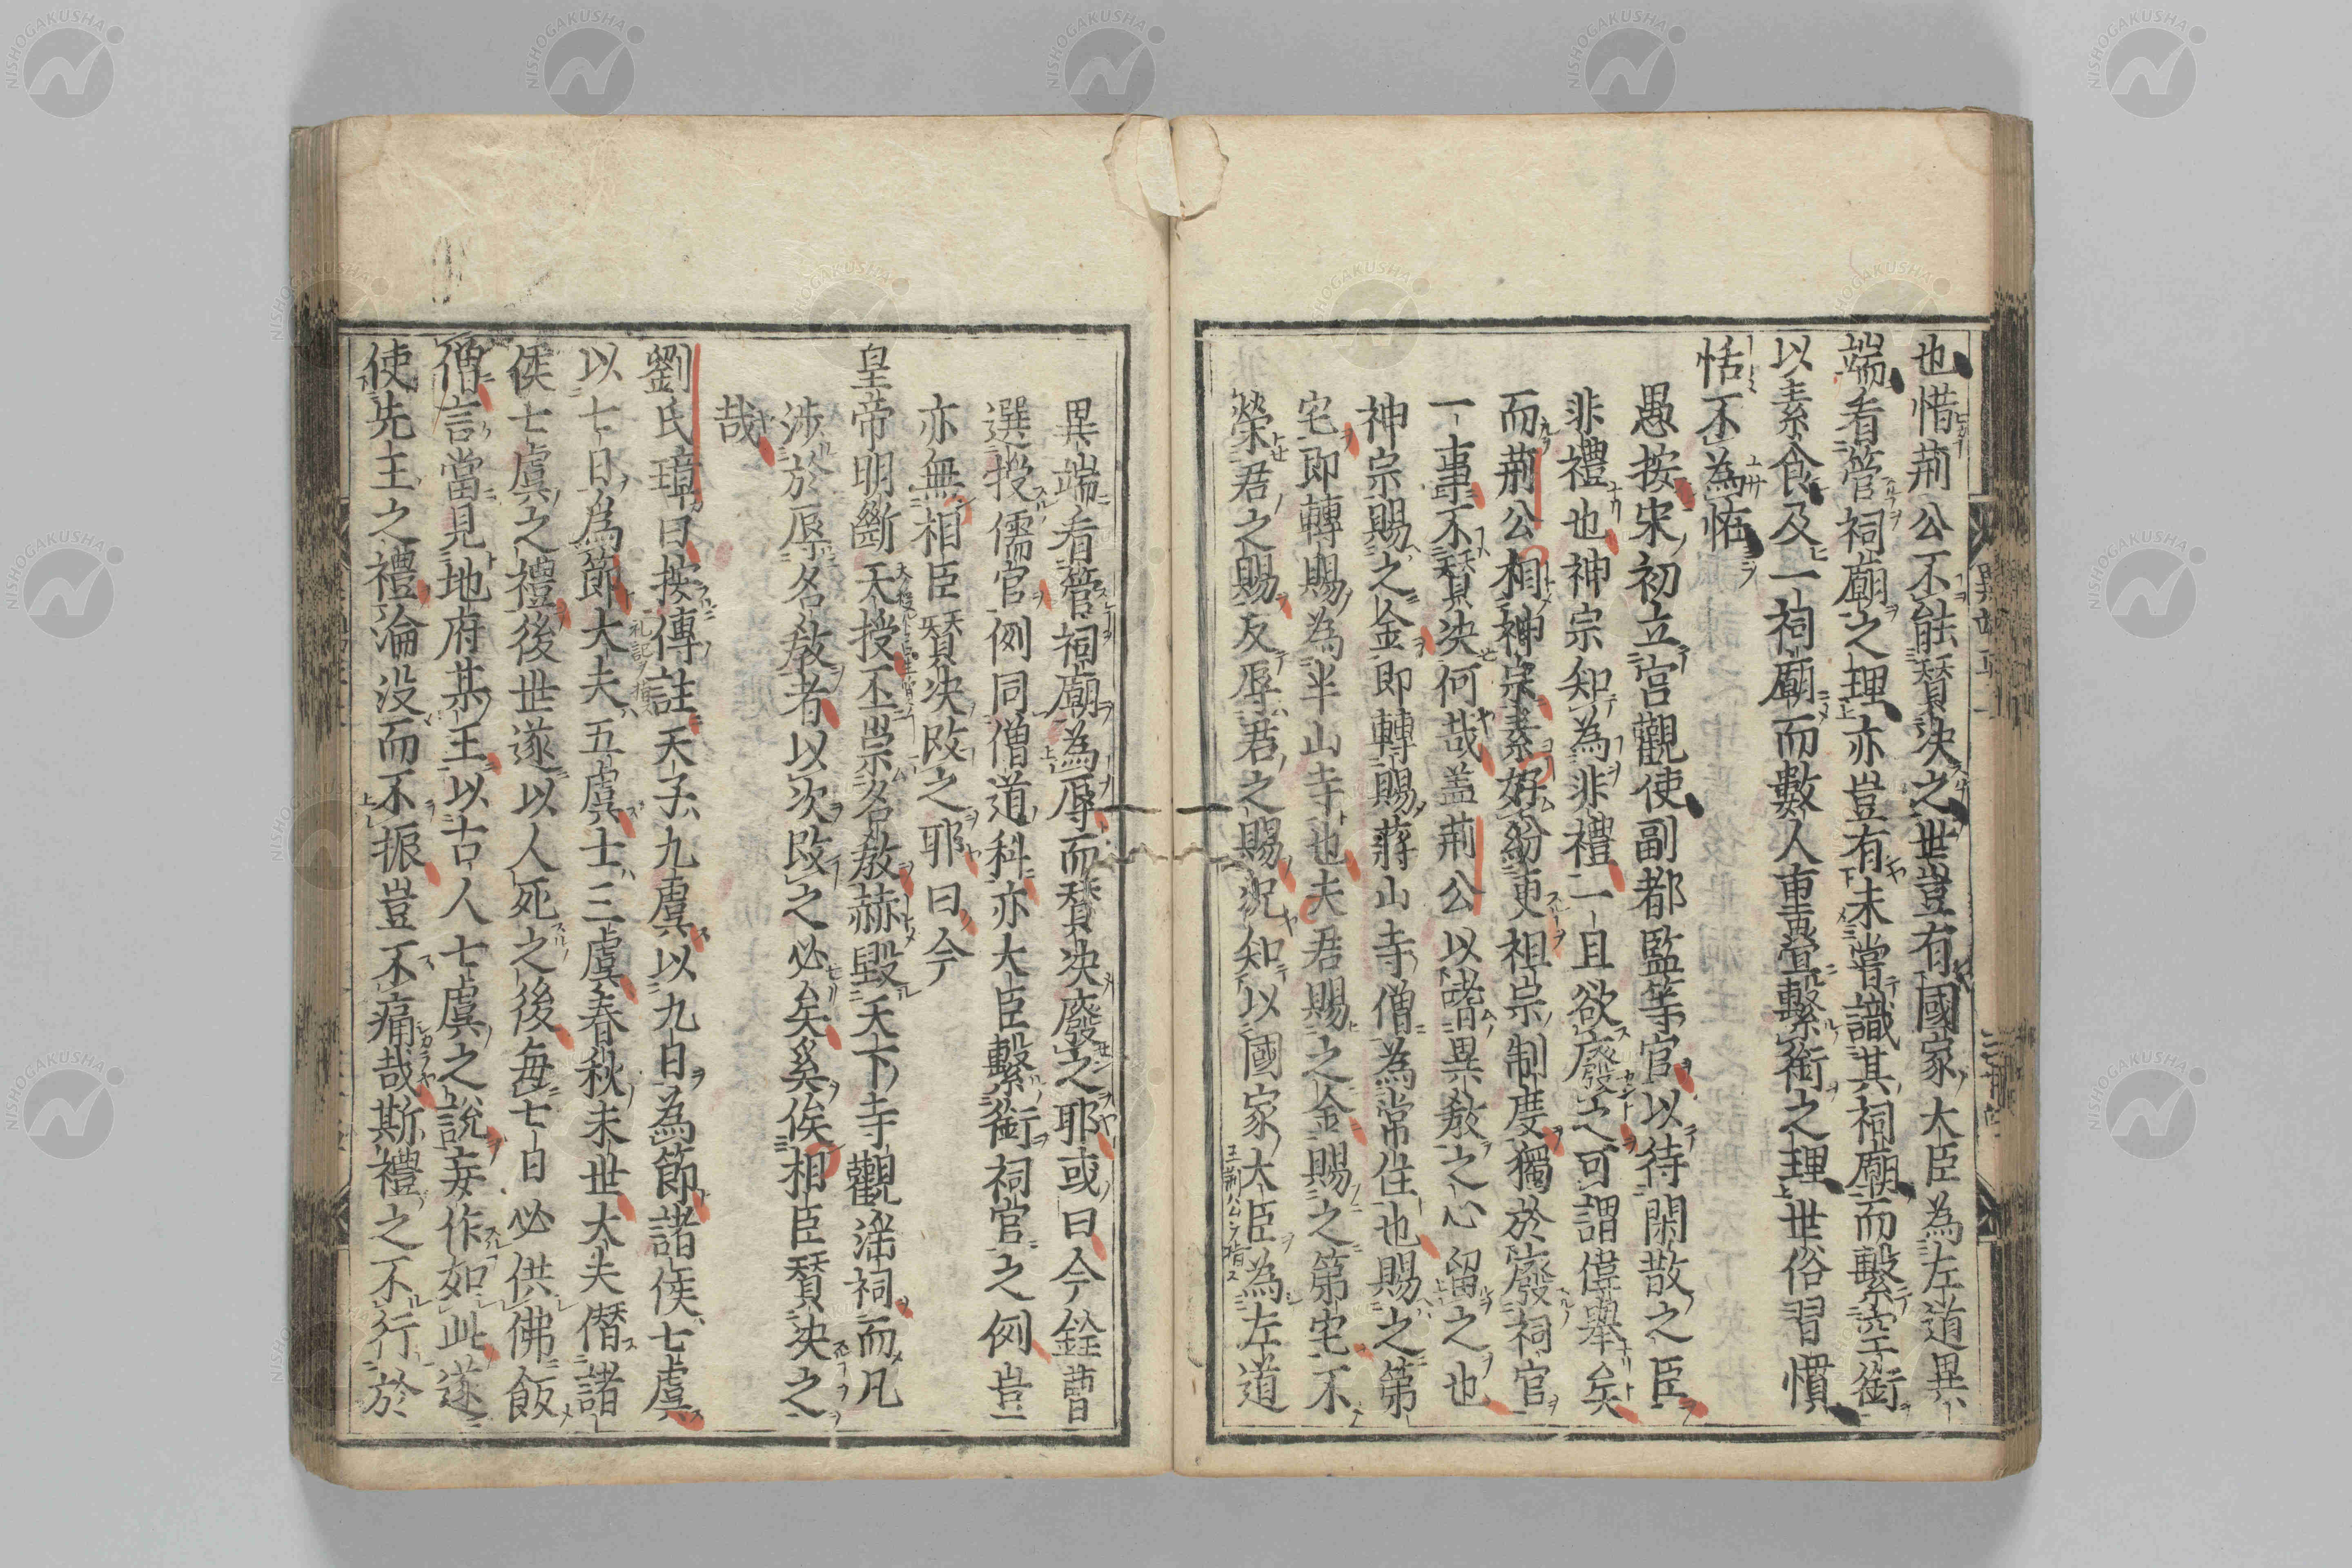 也惜荊公不能賛決之世豈有國家大臣為左道異
端看管祠廟之理亦豈有未嘗識其祠廟而繫空銜
以素食及一祠廟而數人重疊繫銜之理世俗習慣
恬不為恠
愚按宋初立宮觀使副都監等官以待閑散之臣
非禮也神宗知為非禮一旦欲廢之可謂偉舉矣
而荊公相神宗素好紛更祖宗制度獨於廢祠官
一事不賛決何哉盖荊公以諂異教之心留之也
神宗賜之金即轉賜蔣山寺僧為常住也賜之第
宅即轉賜為半山寺也夫君賜之金賜之第宅不
榮君之賜反辱君之賜況知以國家大臣為左道
異端看管祠廟為辱而賛決廢之耶或曰今銓曹
選投儒官例同僧道科亦大臣繫銜祠官之例豈
亦無相臣賛決改之耶曰今
皇帝明斷天授丕崇名教赫毀天下寺觀滛祠而凡
涉於辱名教者以次改之必矣奚俟相臣賛決之
哉
劉氏璋曰按傳註天子九虞以九日為節諸侯七虞
以七日為節大夫五虞士三虞春秋末世大夫僭諸
侯七虞之禮後世遂以人死之後每七日必供佛飯
僧言當見地府某王以古人七虞之說妄作如此遂
使先王之禮淪沒而不振豈不痛哉斯禮之不行於